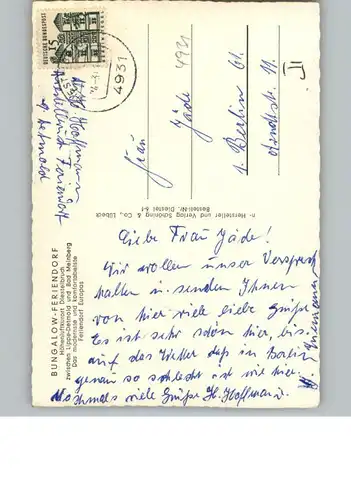 BUNGALOW-FERIENDORF
Höhenluftkurort Diestelbruch
zwischen Lippe-Detmold und Bad Meinberg
Das modernste und komfortabelste
Feriendorf Europas
DEUTSCHE BUNDESPOST
15
4931
4931
H. Hoffmann
Feriendorf
b. Detmold
Hersteller und Verlag Schöning & Co., Lübeck
Bestell-Nr. Diestel 64
Frau
Jäde
1 Berlin 61
11
II
Liebe Frau Jäde!
Wir wollen unser Versprech
halten und senden Ihnen
von hier viele liebe Grüße
Es ist sehr schön hier, bis
auf das Wetter daß in Berlin
genau so schlecht ist wie hier.
Nochmals viele Grüße H. Hoffmann.